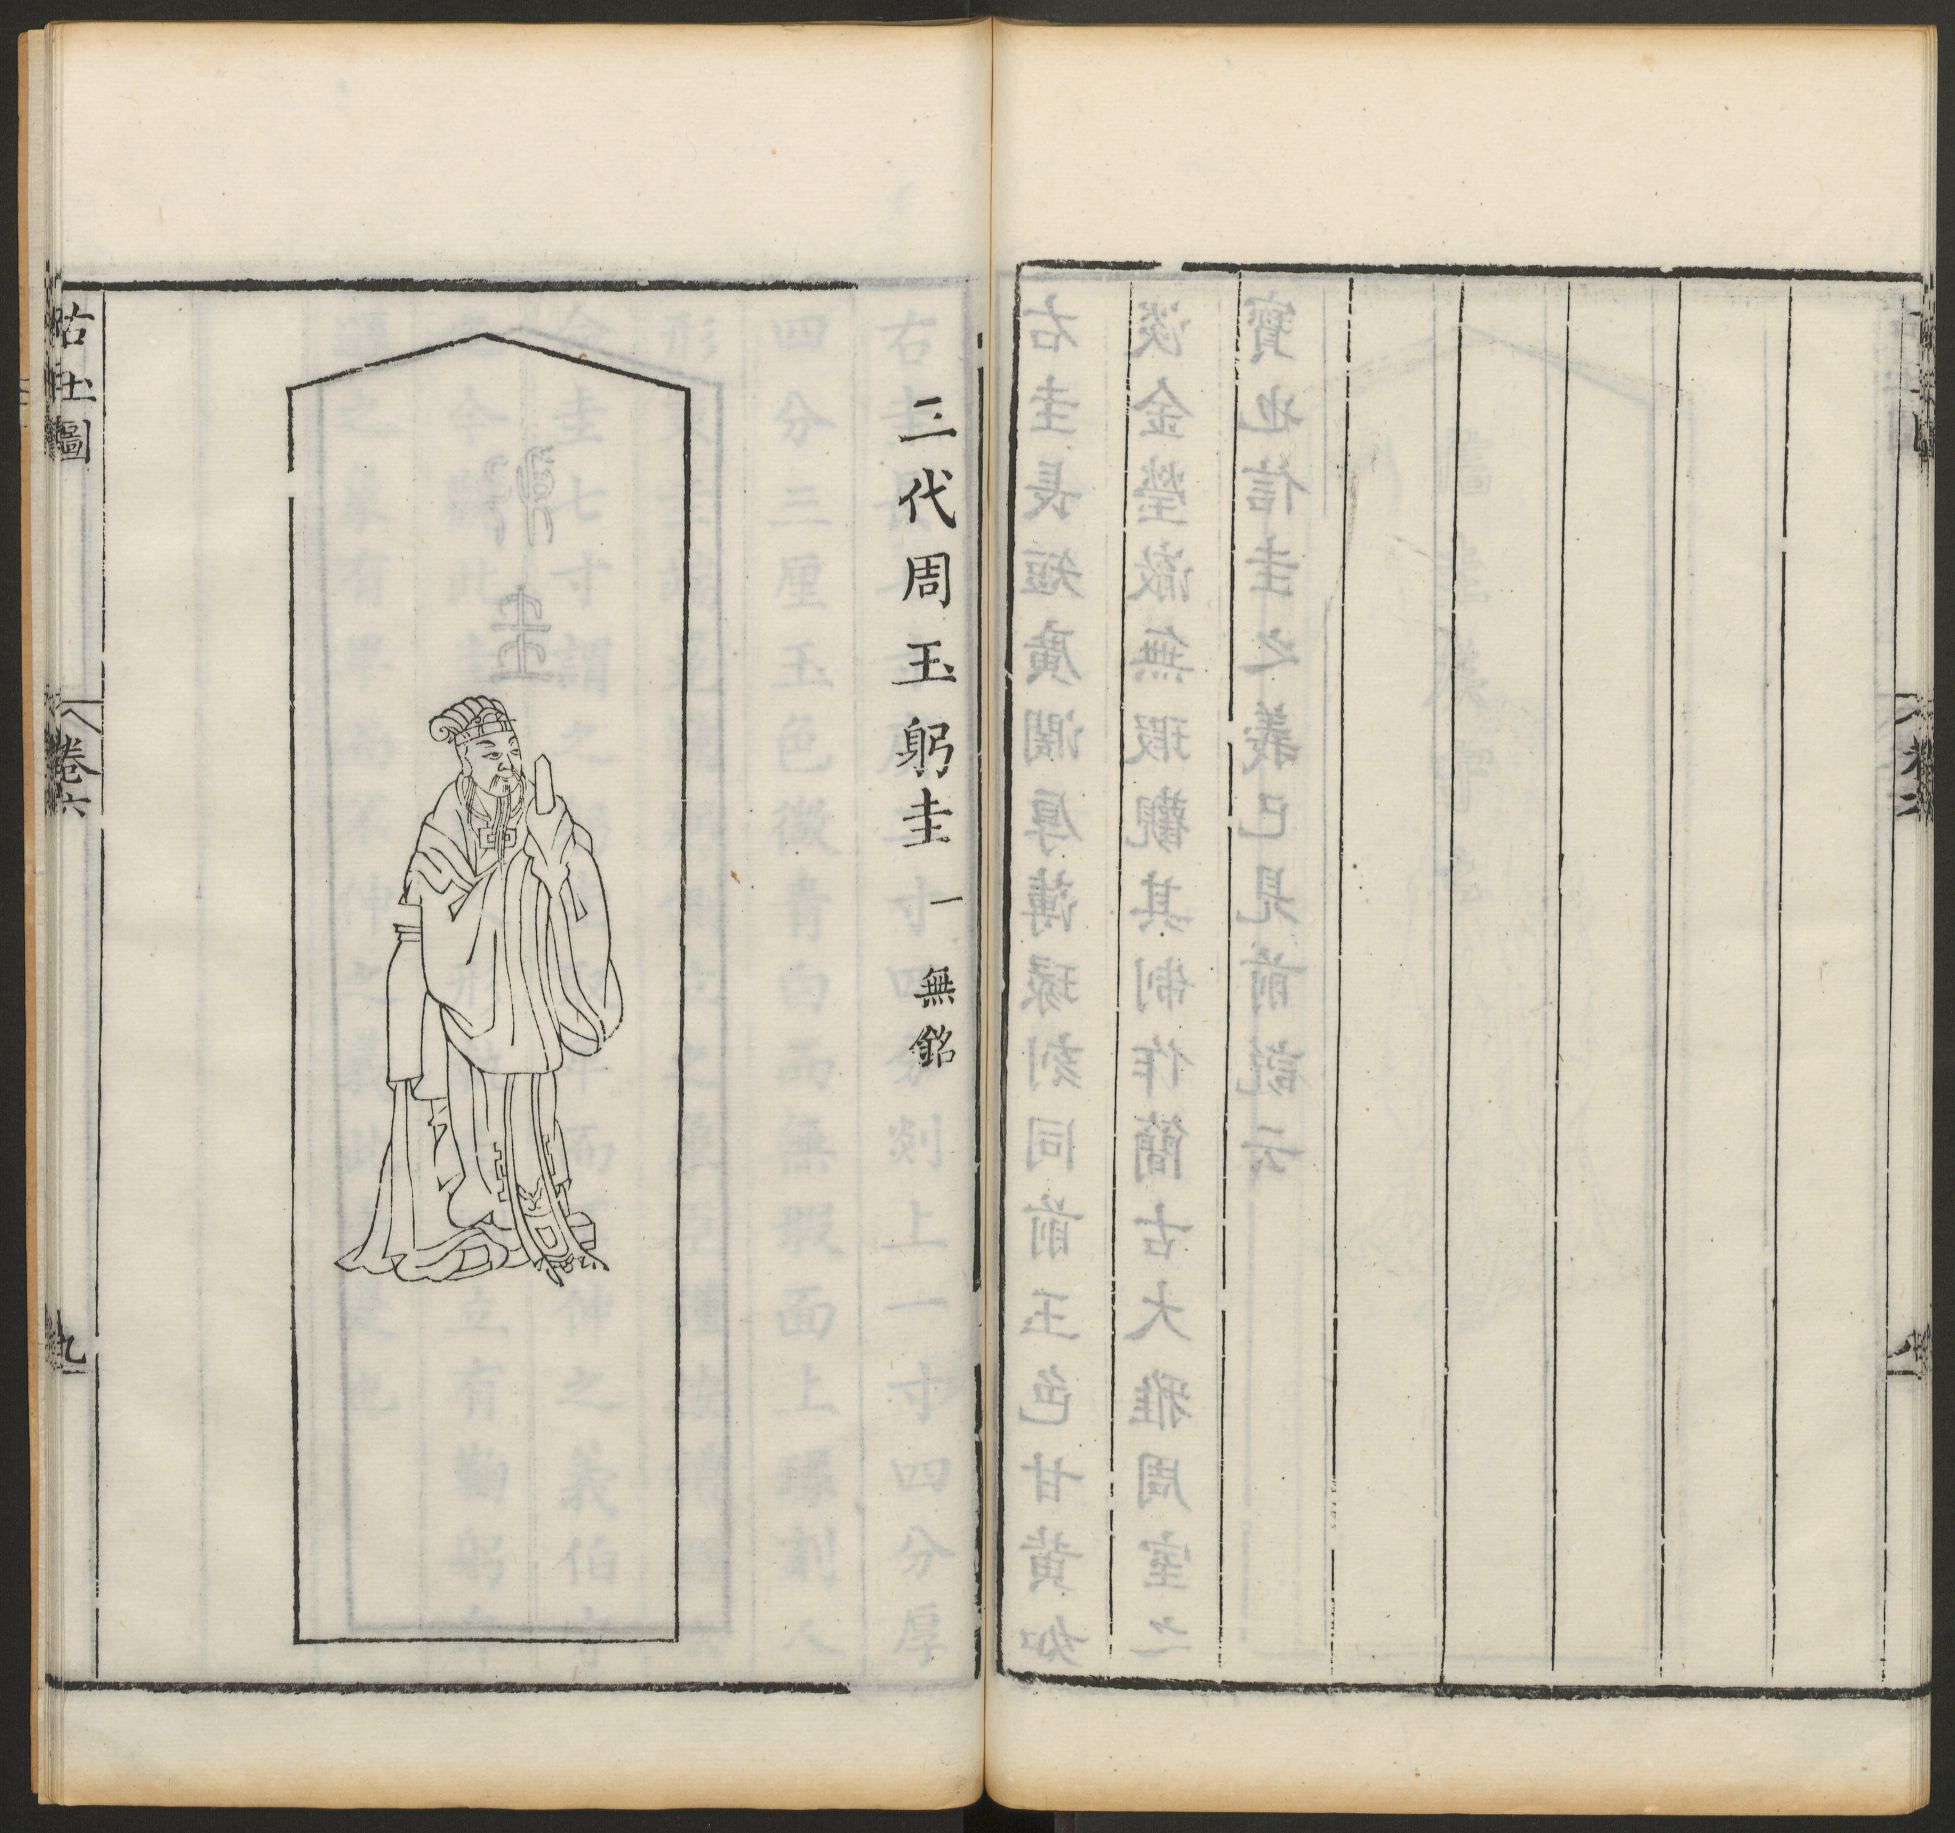 右圭長短廣濶厚薄瑑刻同前玉色甘黃如
淡金瑩澈無瑕觀其制作簡古大雅周室之
寶也信圭之義已見前說云
三代周玉躬圭一 無銘
古玉圖 卷六 九